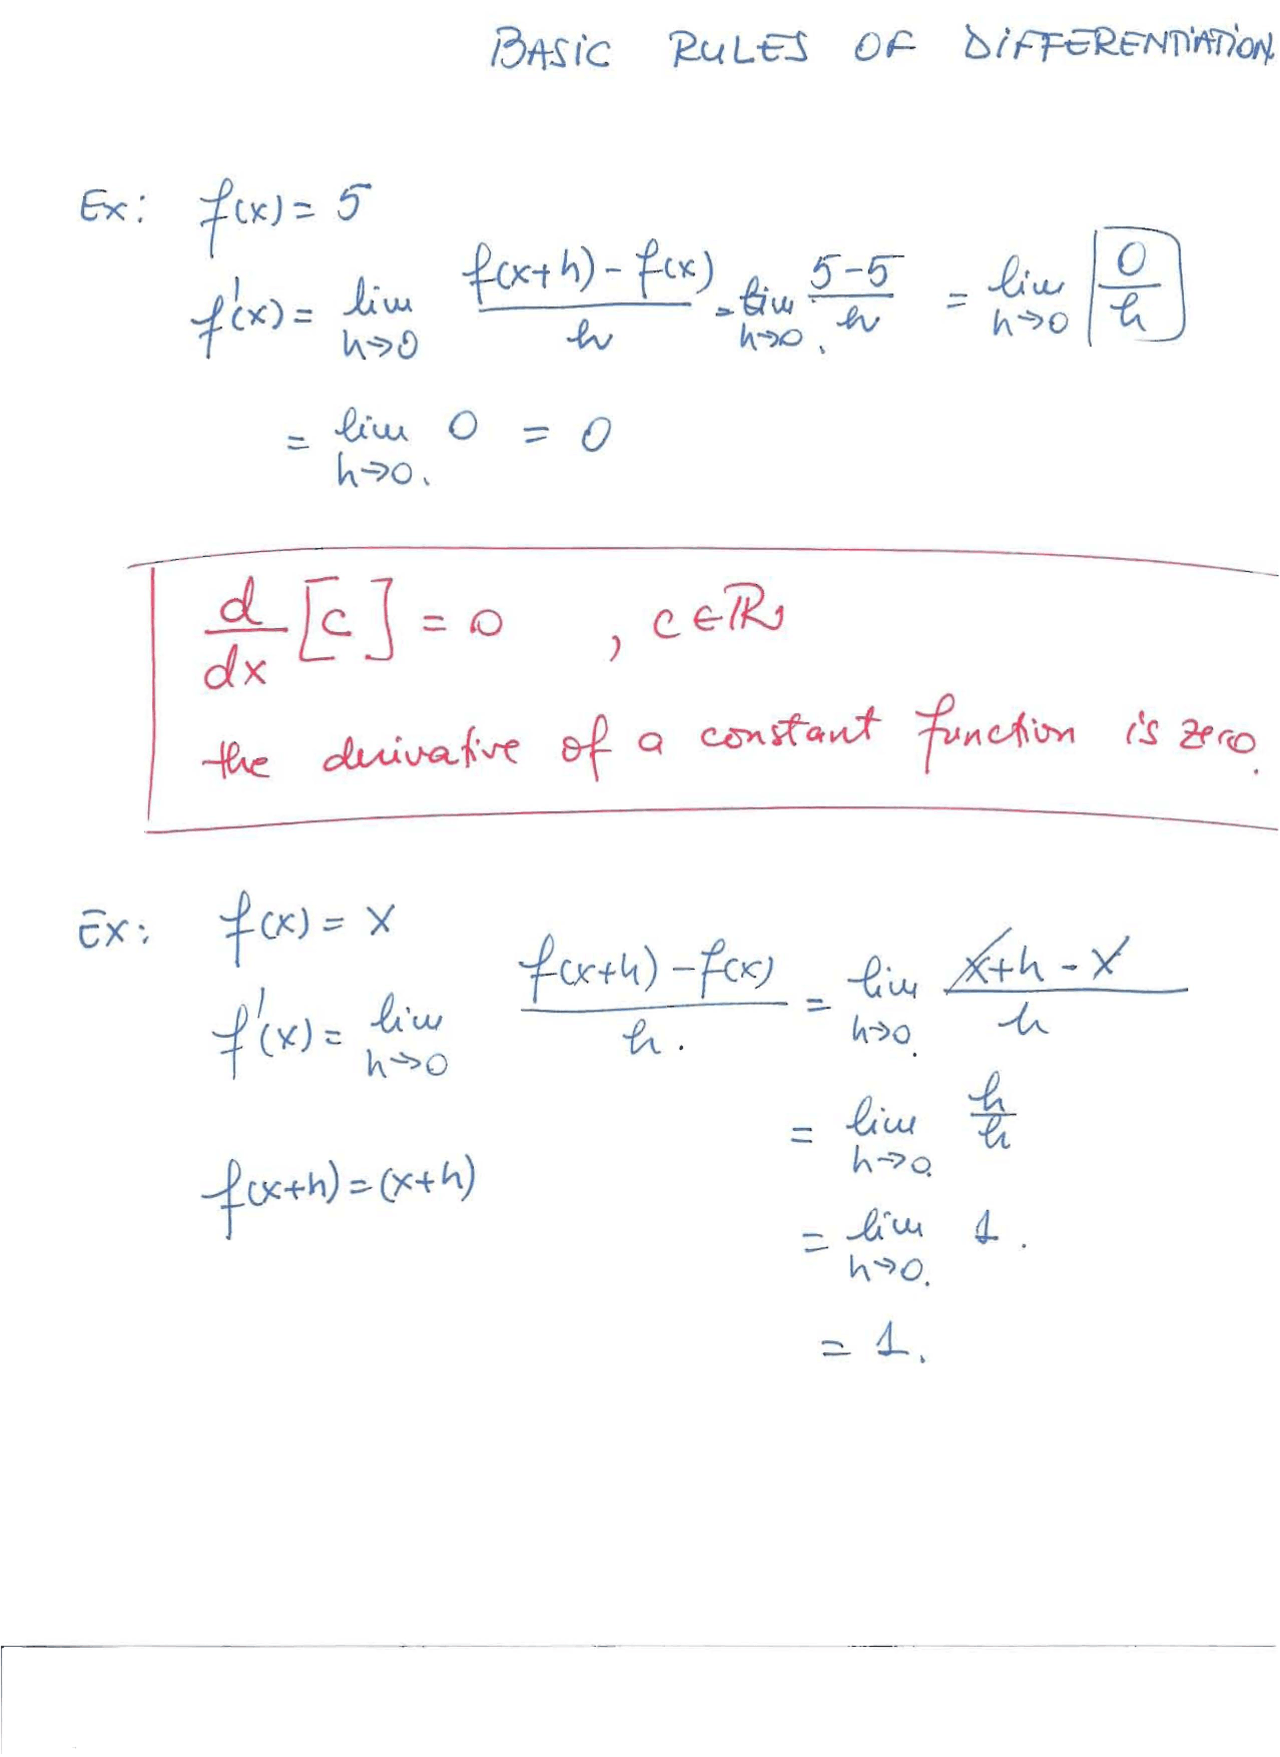 BASIC RULES OF DIFFERENTIATION
Ex: f(x) = 5
f'(x) = lim h→0 (f(x+h) - f(x))/h = lim h→0. (5-5)/h = lim h→0 0/h
= lim h→0. 0 = 0
d/dx [c] = 0 , c∈ℝ
the derivative of a constant function is zero.
Ex: f(x) = x
f'(x) = lim h→0 (f(x+h) - f(x))/h. = lim h→0. (x+h - x)/h
= lim h→0. h/h
f(x+h) = (x+h)
= lim h→0. 1.
= 1.